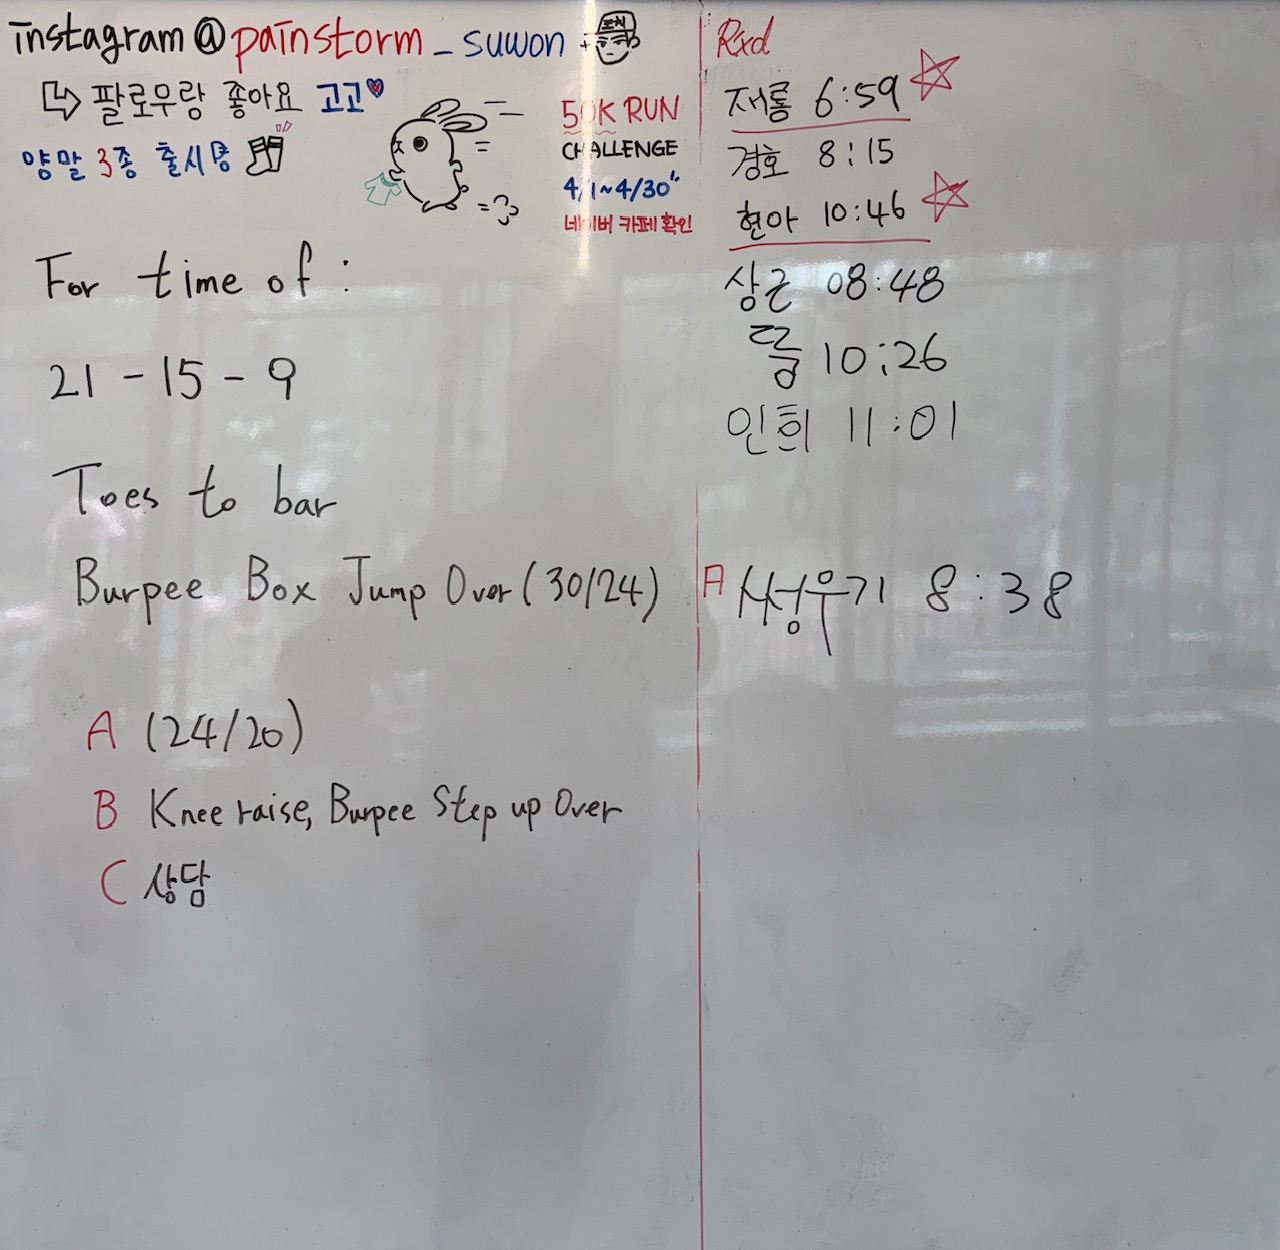 instagram@painstorm_suwon
팔로우랑 좋아요 고고
양말 3종 출시됭
50K RUN
CHALLENGE
4/1~4/30"
네이버 카페 확인
For time of :
21 - 15 - 9
Toes to bar
Burpee Box Jump Over (30/24)
A (24/20)
B Knee raise, Burpee Step up Over
C 상담
Rxd
재롱 6:59
경호 8:15
현아 10:46
상근 08:48
10:26
인희 11:01
A 서성우기 8:38